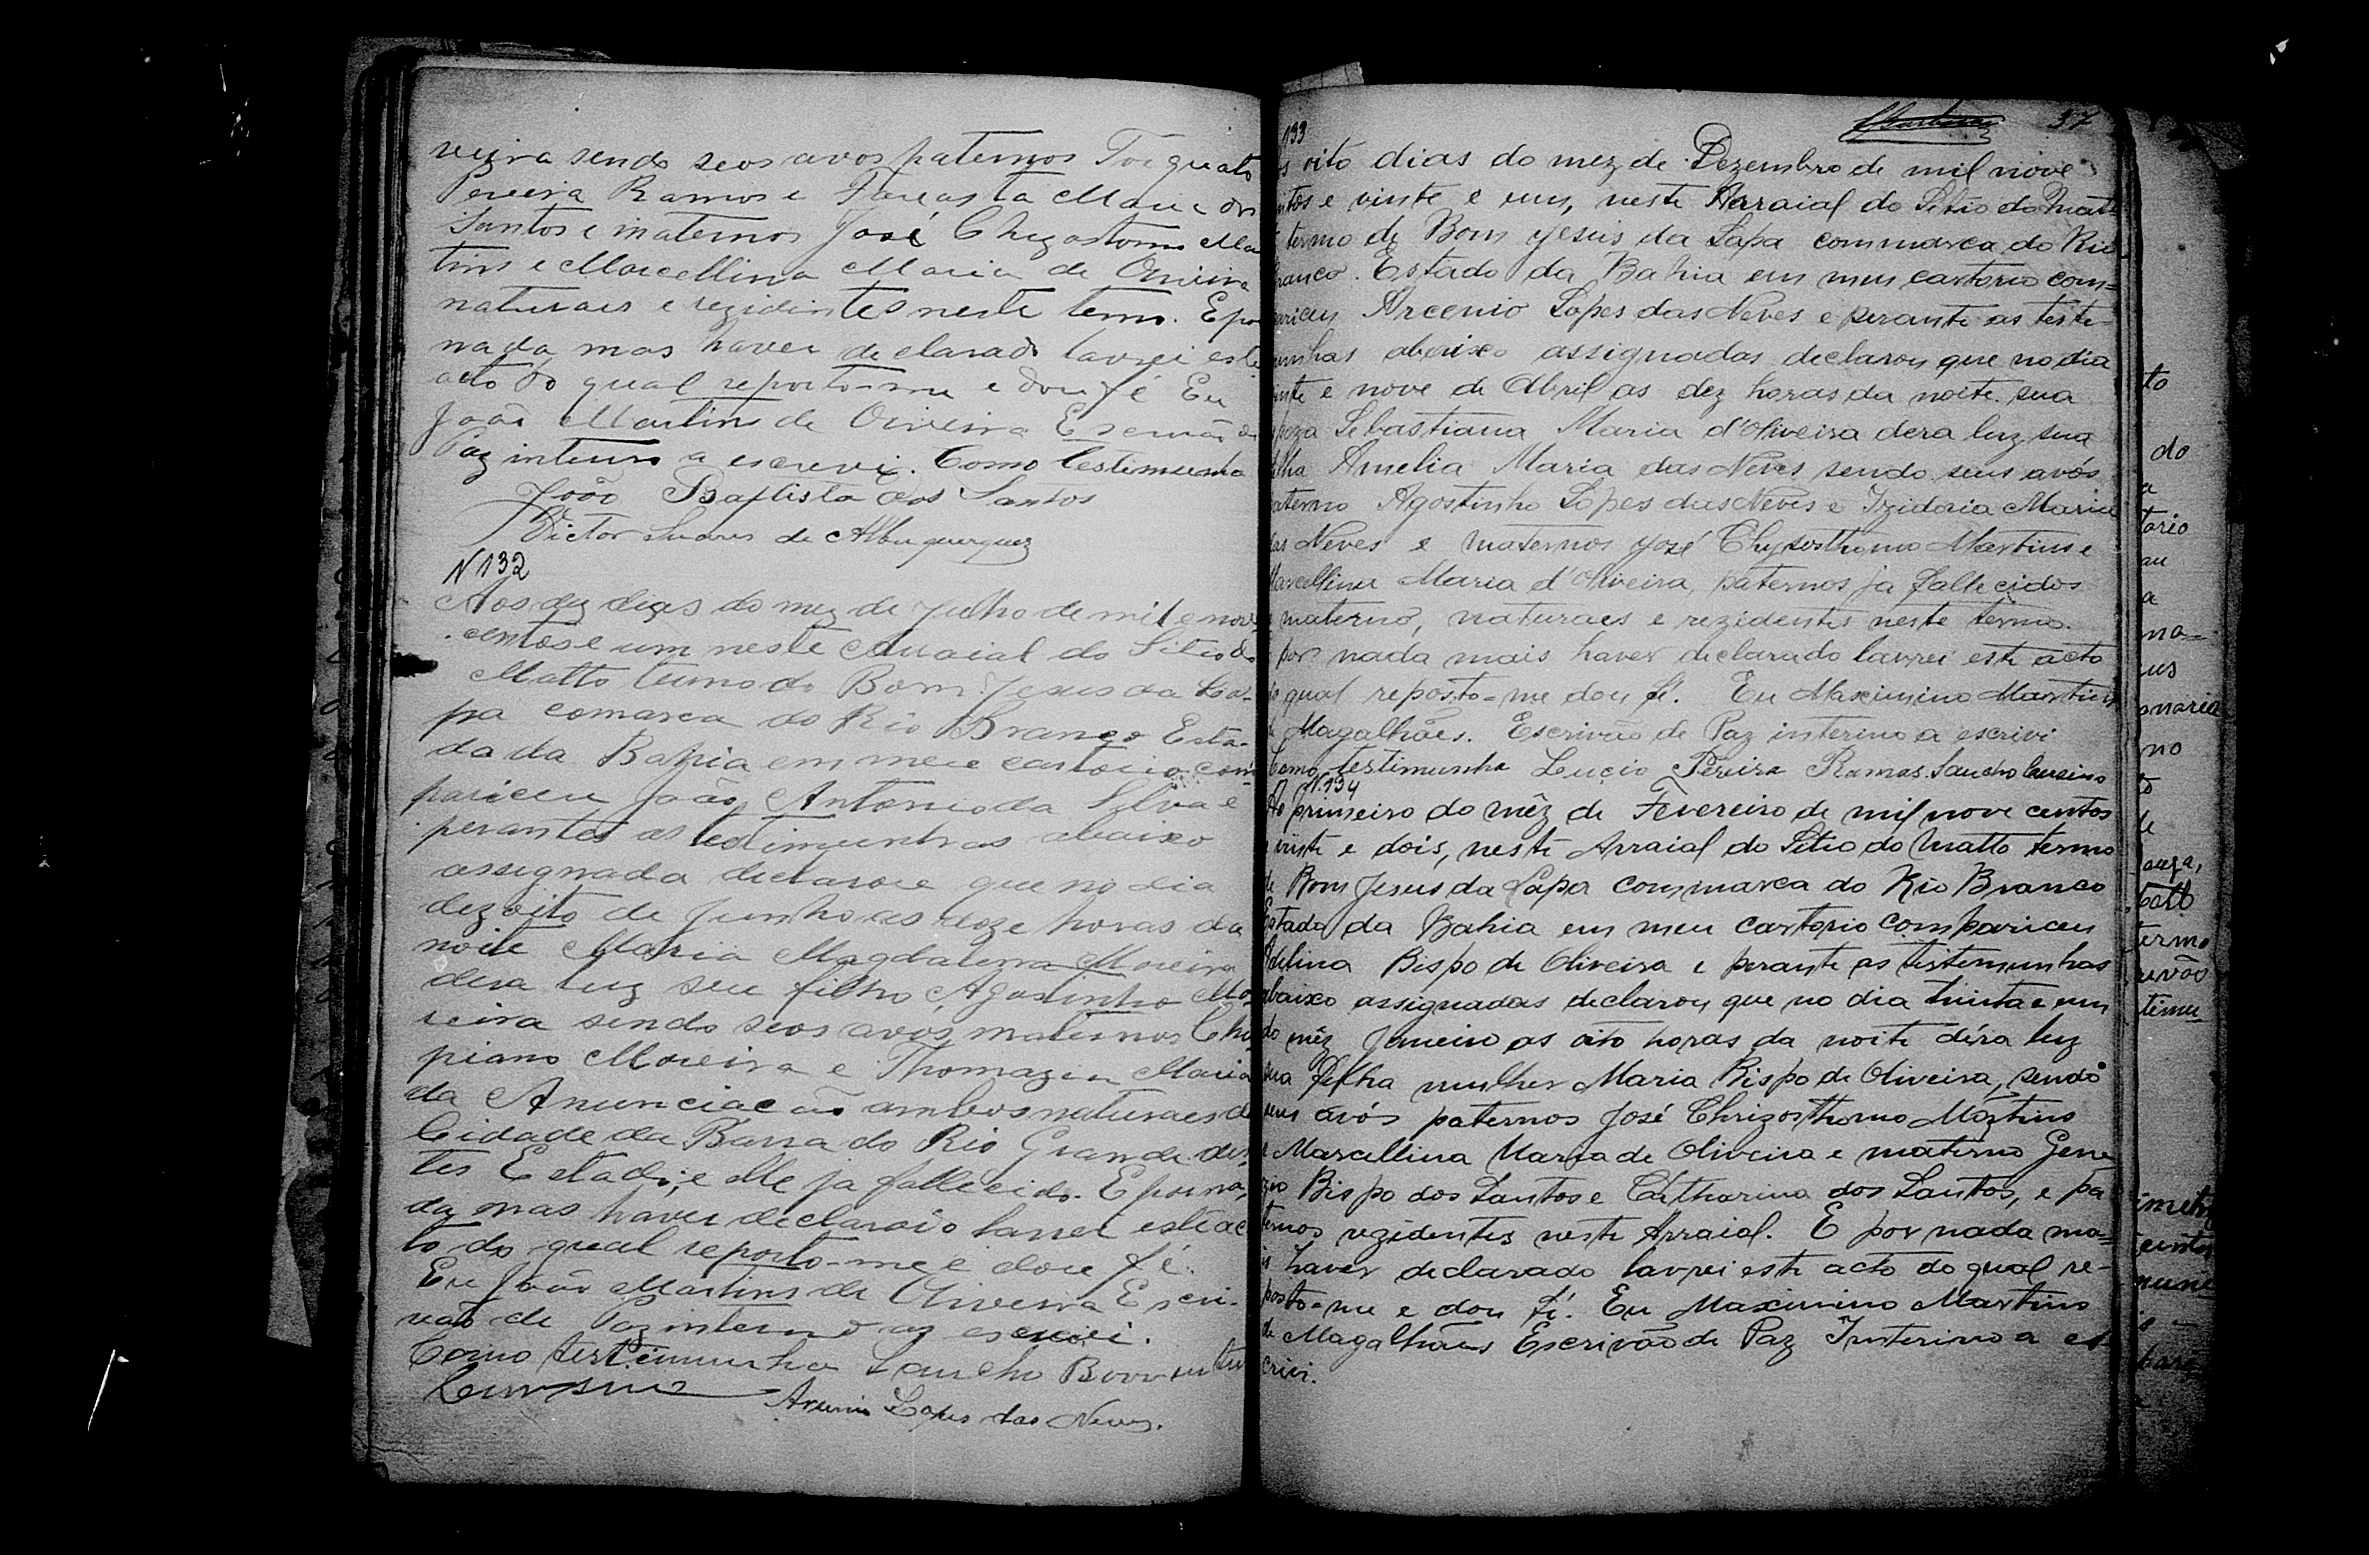 veira sendo seos avos paternos Torquato
Pereira Ramos e Faucta Maria dos
Santos e maternos José Chrizostomo Mar
tins e Marcellina Maria de Oliveira
naturaes e rezidintes neste termo. E por
nada mas haver declarado lavrei este
acto do qual reporto-me e dou fé Eu
João Martins de Oliveira Escrivão de
Paz interino a escrevi. Como testimunha
João Baptista dos Santos
Victor Soares de Albuquerquez
N 132
Aos dez dias do mez de Julho de mil e nove
centos e um neste Arraial do Sitio do
Matto termo do Bom Jesus da La-
pa comarca do Rio Branco Esta-
do da Bahia em meu cartorio com-
pariceu João Antonio da Silva e
perantes as testimunhas abaixo
assignada declarou que no dia
dezoito de Junho as doze horas da
noite Maria Magdalena Moreira
dera luz seu filho Agostinho Mo
reira sendo seos avós maternos
piano Moreira e Thomazia Maria
da Anunciacão ambos naturaes da
Cidade da Barra do Rio Grande des
tes Estado; e elle ja fallecido. E por na
da mas haver declarado lavrei este ac
to do qual reporto-me e dou fé.
Eu João Martins de Oliveira Escri-
vão de Paz interino as escrevi.
Como testimunha Sancho Boaventura
Cursino
Arcenio Lopes das Neves.
133
37
s oito dias do mez de Dezembro de mil nove
ntos e vinte e um, neste Arraial do Sitio do Matt
termo de Bom Jesus da Lapa commarca do Rio
ranco. Estado da Bahia em meu cartorio com=
pariceu Arcenio Lopes das Neves e perante as teste-
munhas abaixo assignadas declarou que no dia
vinte e nove de Abril as dez horas da noite sua
espoza Sebastiana Maria d'Oliveira dera luz sua
filha Amelia Maria das Neves sendo seus avós
paterno Agostinho Lopes das Neves e Izidoria Maria
das Neves e maternos José Chysosthomo Martins e
Marcellina Maria d'Oliveira, paternos ja fallecidos
e materno, naturaes e rezidentes neste termo.
E por nada mais haver declarado lavrei este acto
do qual reposto-me dou fé. Eu Maximino Martins
de Magalhães. Escrivão de Paz interino a escrivi
Como testimunha Lucio Pereira Ramos. Sancho Cursino
N. 134
Ao primeiro do mêz de Fevereiro de mil nove centos
e vinte e dois, neste Arraial do Sitio do Matto termo
de Bom Jesus da Lapa commarca do Rio Branco
Estado da Bahia em meu cartorio compariceu
Adelina Bispo de Oliveira e perante as testemunhas
abaixo assignadas declarou que no dia trinta e um
do mêz Janeiro as oito horas da noite déra luz
sua filha mulher Maria Bispo de Oliveira, sendo
seus avós paternos José Chrizosthomo Martins
e Marcellina Maria de Oliveira e materno Gene
zio Bispo dos Santos e Catharina dos Santos, e pa
ternos rezidentes neste Arraial. E por nada ma=
is haver declarado lavrei este acto do qual re-
posto-me e dou fé. Eu Maximino Martins
de Magalhães Escrivão de Paz Interino a es-
crivi.
to
do
tario
au
a
na=
us
onaria
no
to
de
termo
rivão
temu-